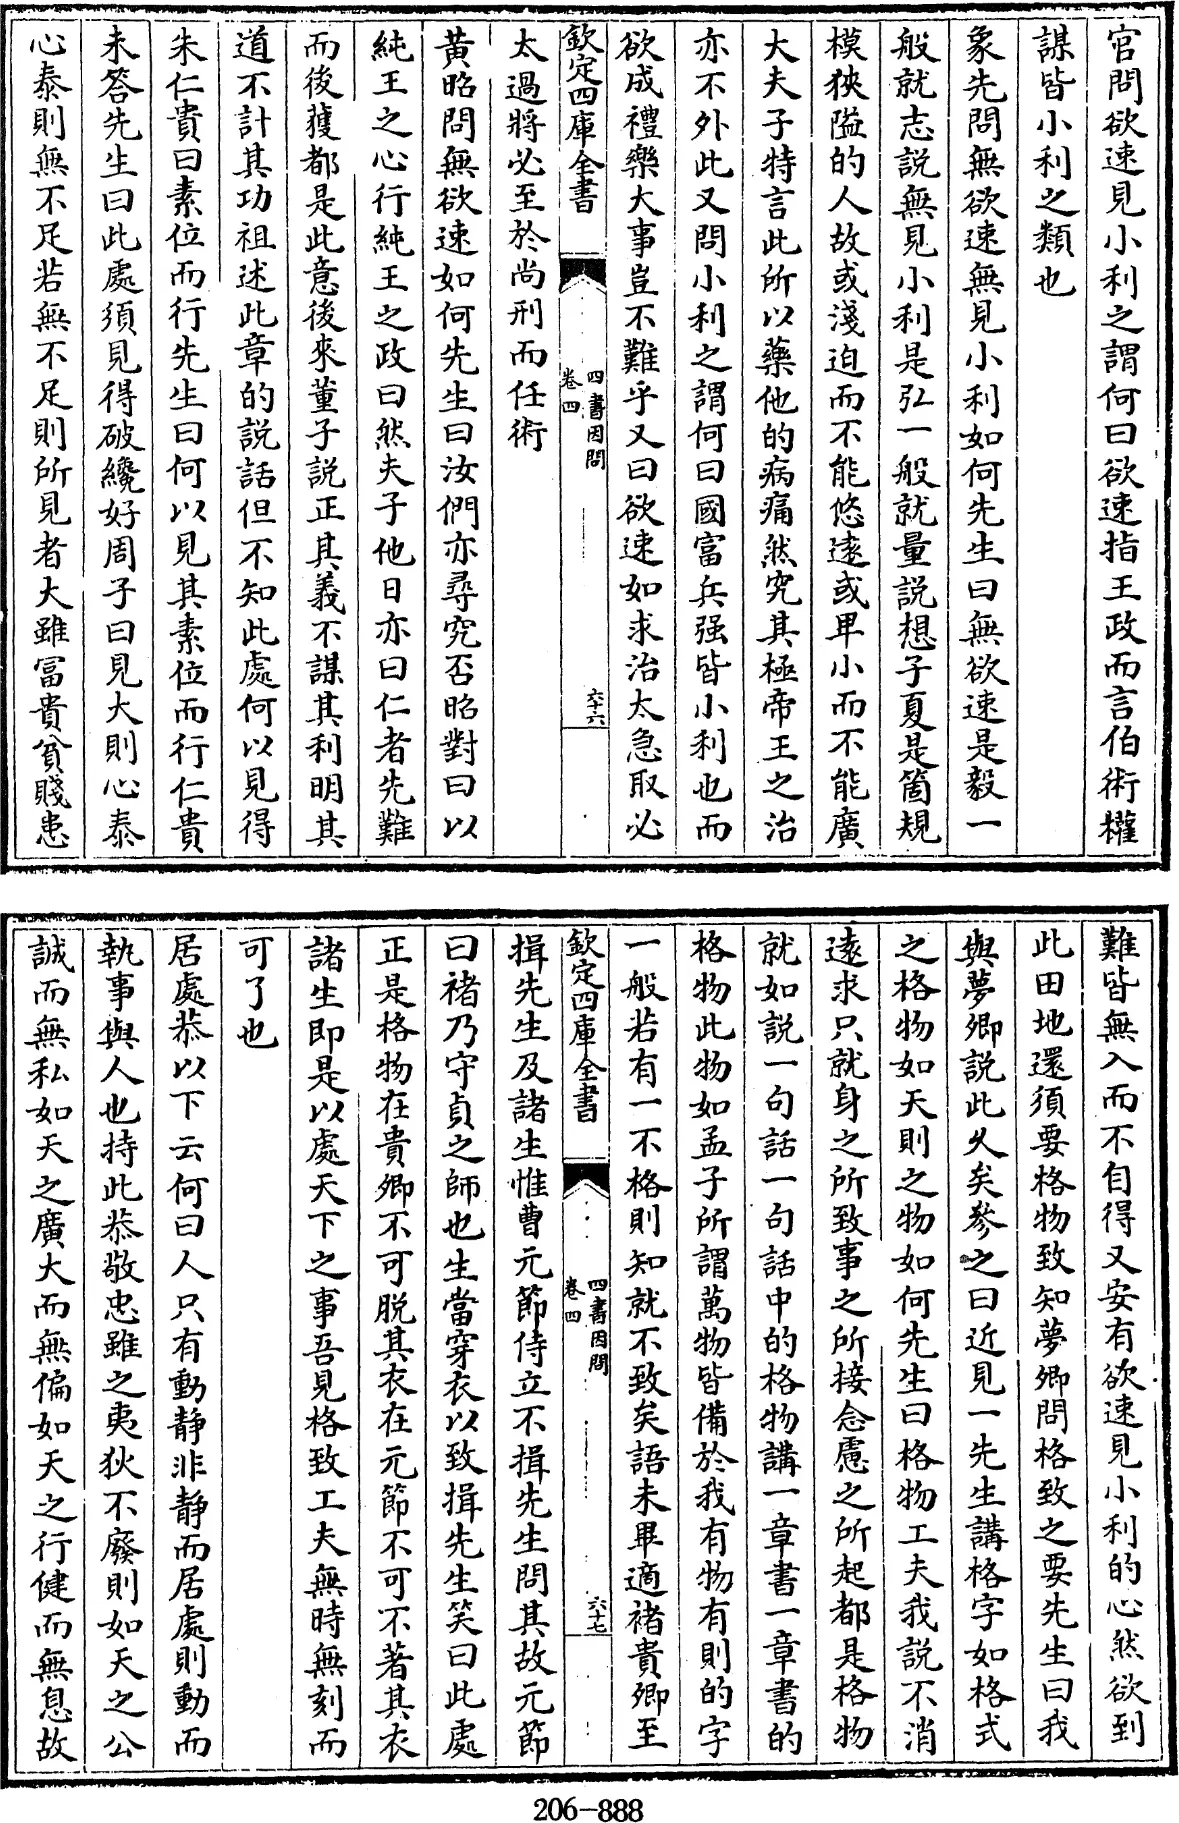 官問欲速見小利之謂何曰欲速指王政而言伯術權
謀皆小利之類也
象先問無欲速無見小利如何先生曰無欲速是毅一
般就志說無見小利是弘一般就量說想子夏是箇規
模狹隘的人故或淺迫而不能悠遠或卑小而不能廣
大夫子特言此所以藥他的病痛然究其極帝王之治
亦不外此又問小利之謂何曰國富兵强皆小利也而
欲成禮樂大事豈不難乎又曰欲速如求治太急取必
欽定四庫全書
四書因問
卷四
六十六
太過將必至於尚刑而任術
黃昭問無欲速如何先生曰汝們亦尋究否昭對曰以
純王之心行純王之政曰然夫子他日亦曰仁者先難
而後獲都是此意後來董子說正其義不謀其利明其
道不計其功祖述此章的說話但不知此處何以見得
朱仁貴曰素位而行先生曰何以見其素位而行仁貴
未答先生曰此處須見得破纔好周子曰見大則心泰
心泰則無不足若無不足則所見者大雖富貴貧賤患
難皆無入而不自得又安有欲速見小利的心然欲到
此田地還須要格物致知夢卿問格致之要先生曰我
與夢卿說此久矣參之曰近見一先生講格字如格式
之格物如天則之物如何先生曰格物工夫我說不消
遠求只就身之所致事之所接念慮之所起都是格物
就如說一句話一句話中的格物講一章書一章書的
格物此物如孟子所謂萬物皆備於我有物有則的字
一般若有一不格則知就不致矣語未畢適褚貴卿至
欽定四庫全書
四書因問
卷四
六十七
揖先生及諸生惟曹元節侍立不揖先生問其故元節
曰褚乃守貞之師也生當穿衣以致揖先生笑曰此處
正是格物在貴卿不可脫其衣在元節不可不著其衣
諸生即是以處天下之事吾見格致工夫無時無刻而
可了也
居處恭以下云何曰人只有動靜非靜而居處則動而
執事與人也持此恭敬忠雖之夷狄不廢則如天之公
誠而無私如天之廣大而無偏如天之行健而無息故
206-888